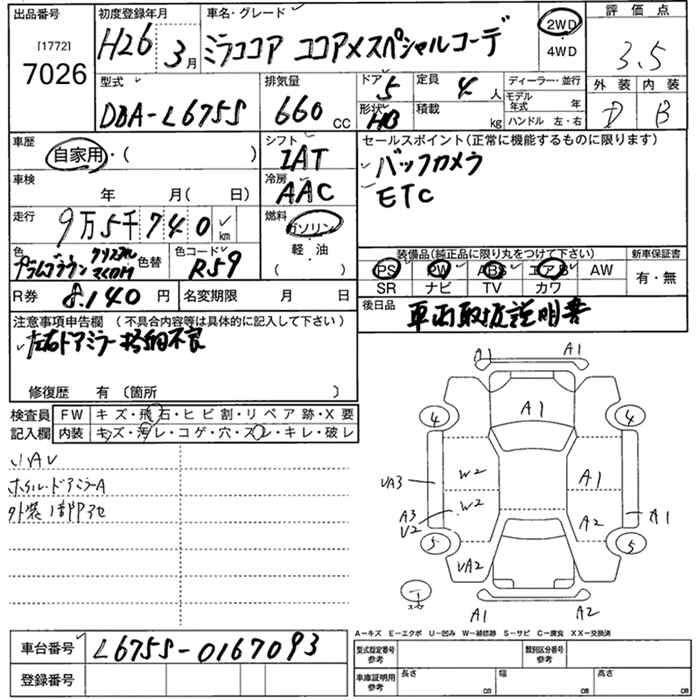 出品番号 初度登録年月 車名・グレード 評価点
[1772]
7026
H26 3月
ミラココア ココアXスペシャルコーデ
2WD
4WD
3.5
型式 排気量 ドア 定員 ディーラー・並行 外装 内装
DBA-L675S 660 CC
5 4 人
モデル年式 年
形状 HB 積載 kg ハンドル 左・右
D B
車歴
自家用・( )
シフト
IAT
セールスポイント(正常に機能するものに限ります)
バックカメラ
ETC
車検 年 月( 日)
冷房
AAC
走行 9万5千740 km
燃料
ガソリン
軽・油
( )
色 プラムブラウンクリスタルマイカM 色替 色コード R59
装備品(純正品に限り丸をつけて下さい) 新車保証書
PS PW ABS エアB AW
SR ナビ TV カワ
有・無
R券 8,140 円 名変期限 月 日
後日品 車両取扱説明書
注意事項申告欄 (不具合内容等は具体的に記入して下さい)
左右ドアミラー格納不良
修復歴 有 〔箇所 〕
検査員記入欄
FW キズ・飛石・ヒビ割・リペア跡・X要
内装 キズ・汚レ・コゲ・穴・スレ・キレ・破レ
小AU
ホイル・ドアミラーA
外装1部アセ
A1 A1
A1
4 4
UA3 W2 A1
A3 U2 W2 A2 A1
5 5
UA2
A1 A2
A-キズ E-エクボ U-凹み W-補修跡 S-サビ C-腐食 XX-交換済
車台番号 L675S-0167093
型式指定番号 参考 類別区分番号 参考
登録番号
車庫証明用 参考 長さ cm 幅 cm 高さ cm